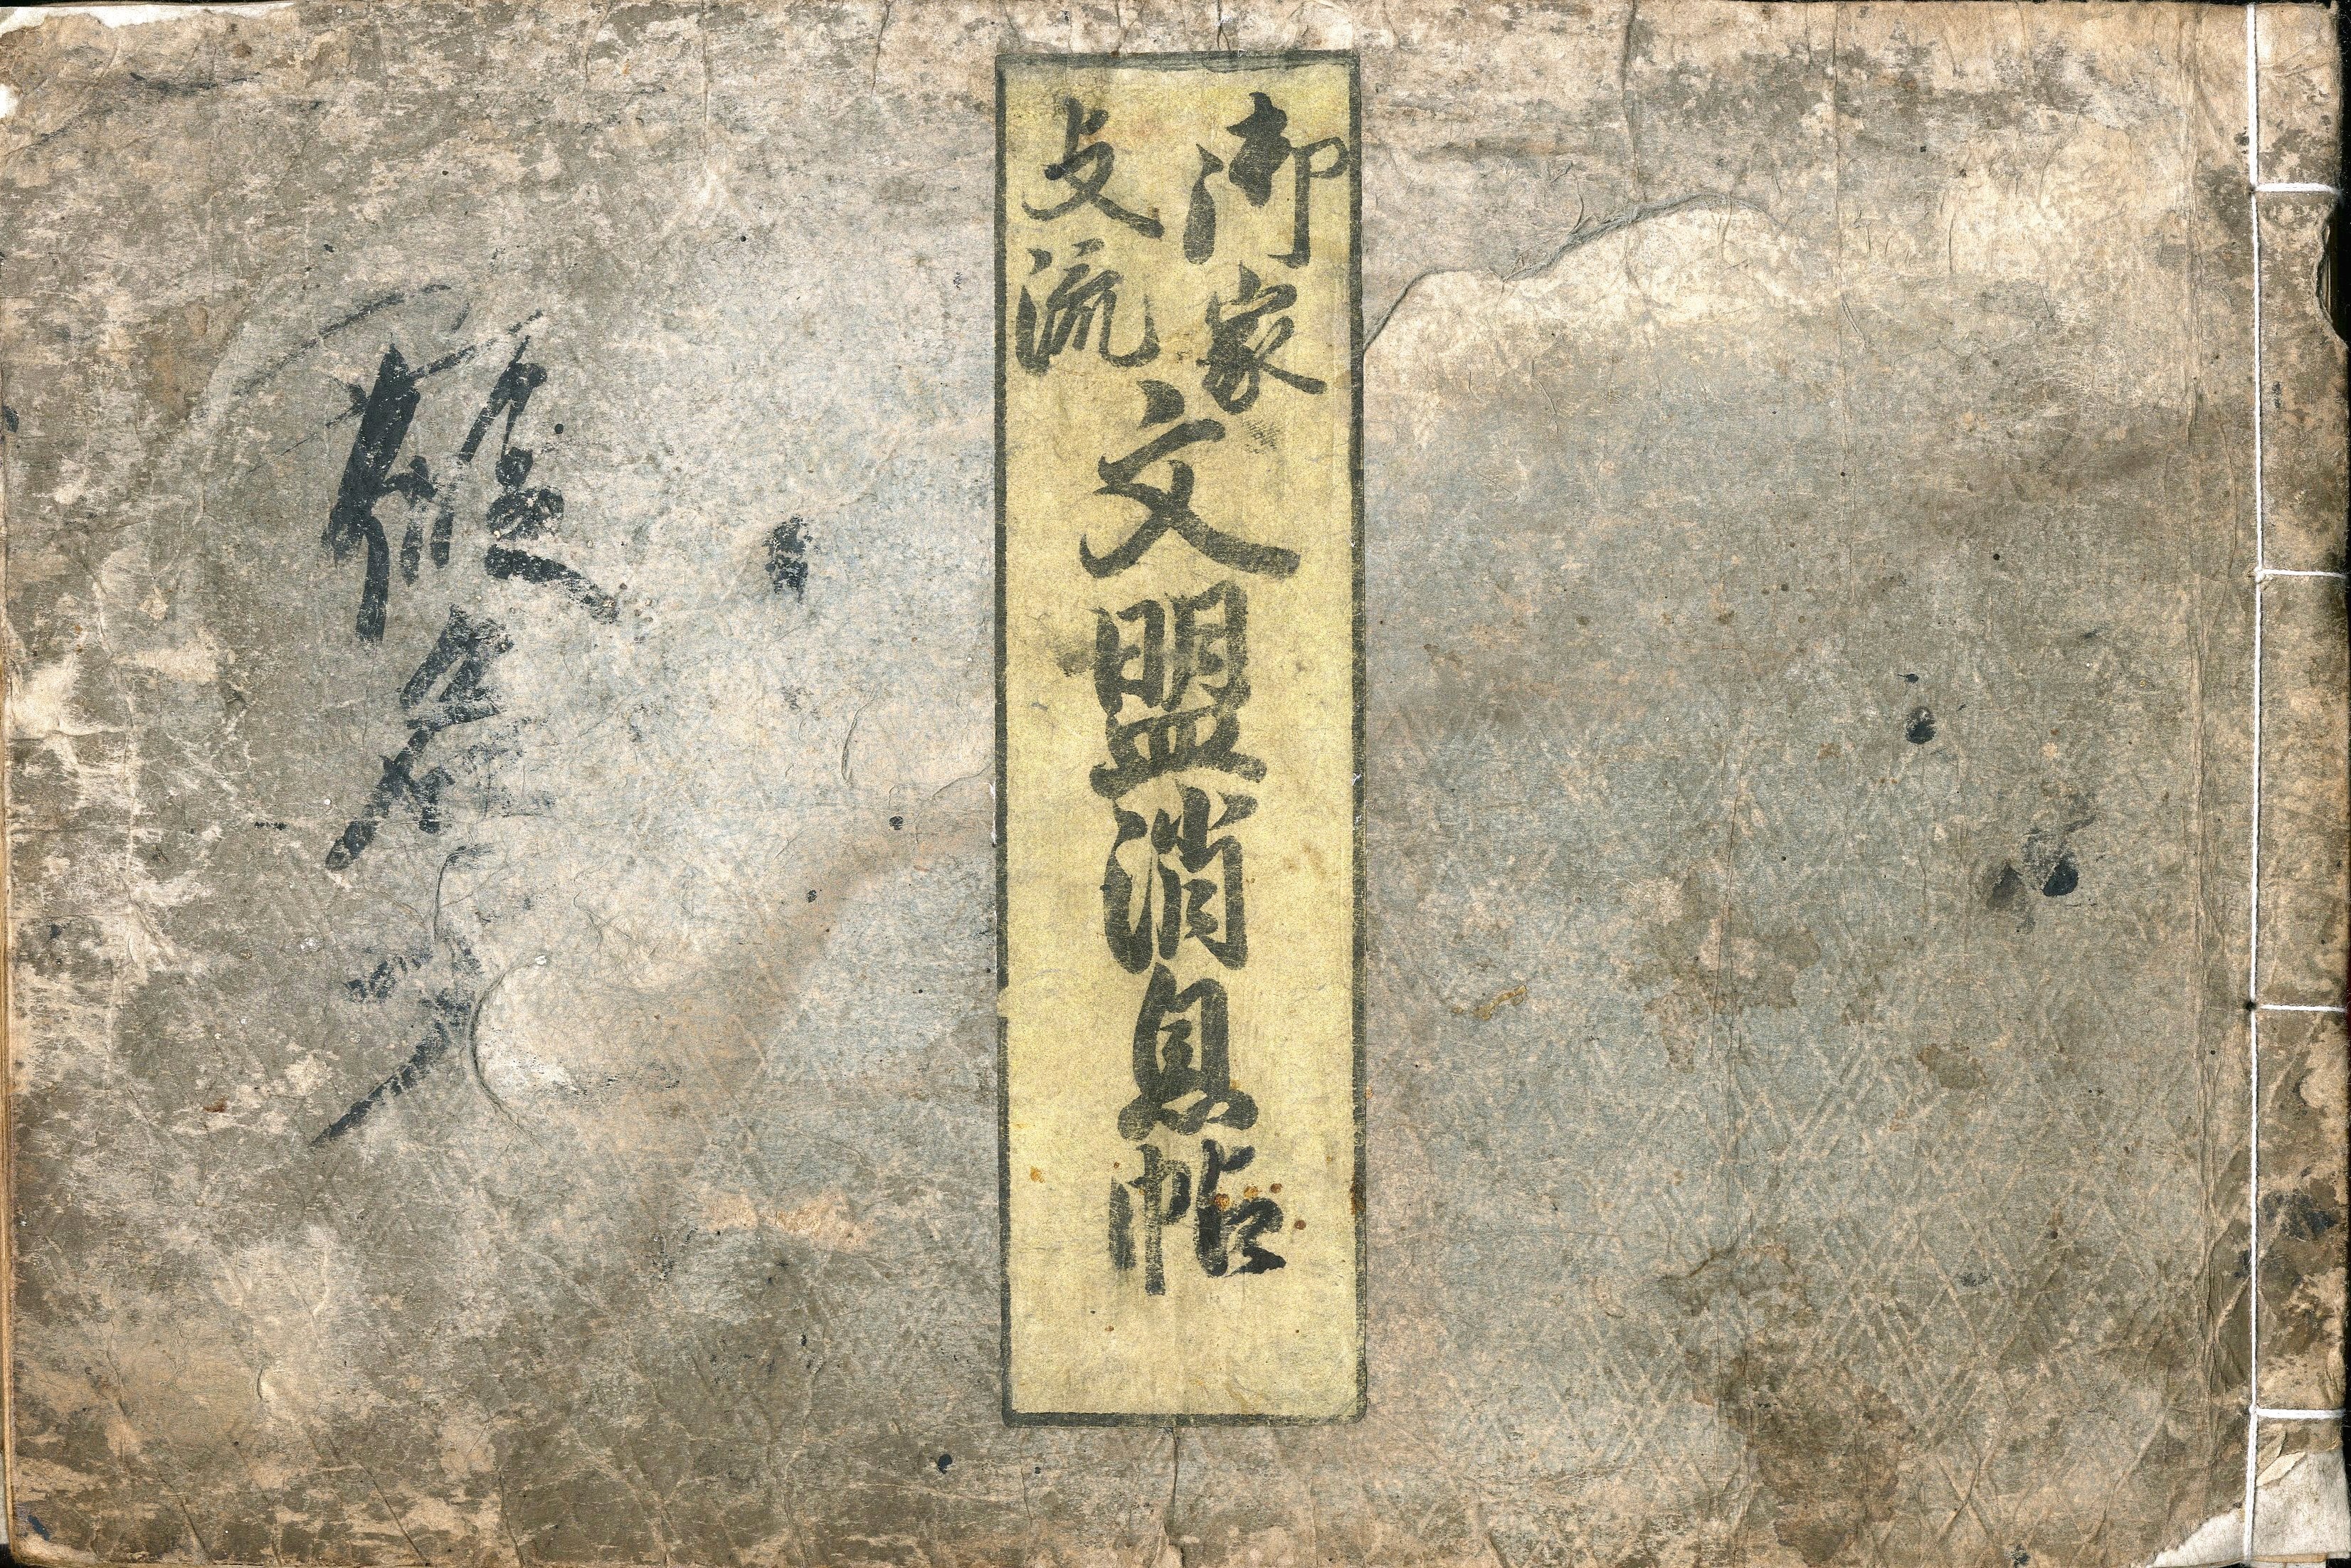 御家
支流
文盟消息帖